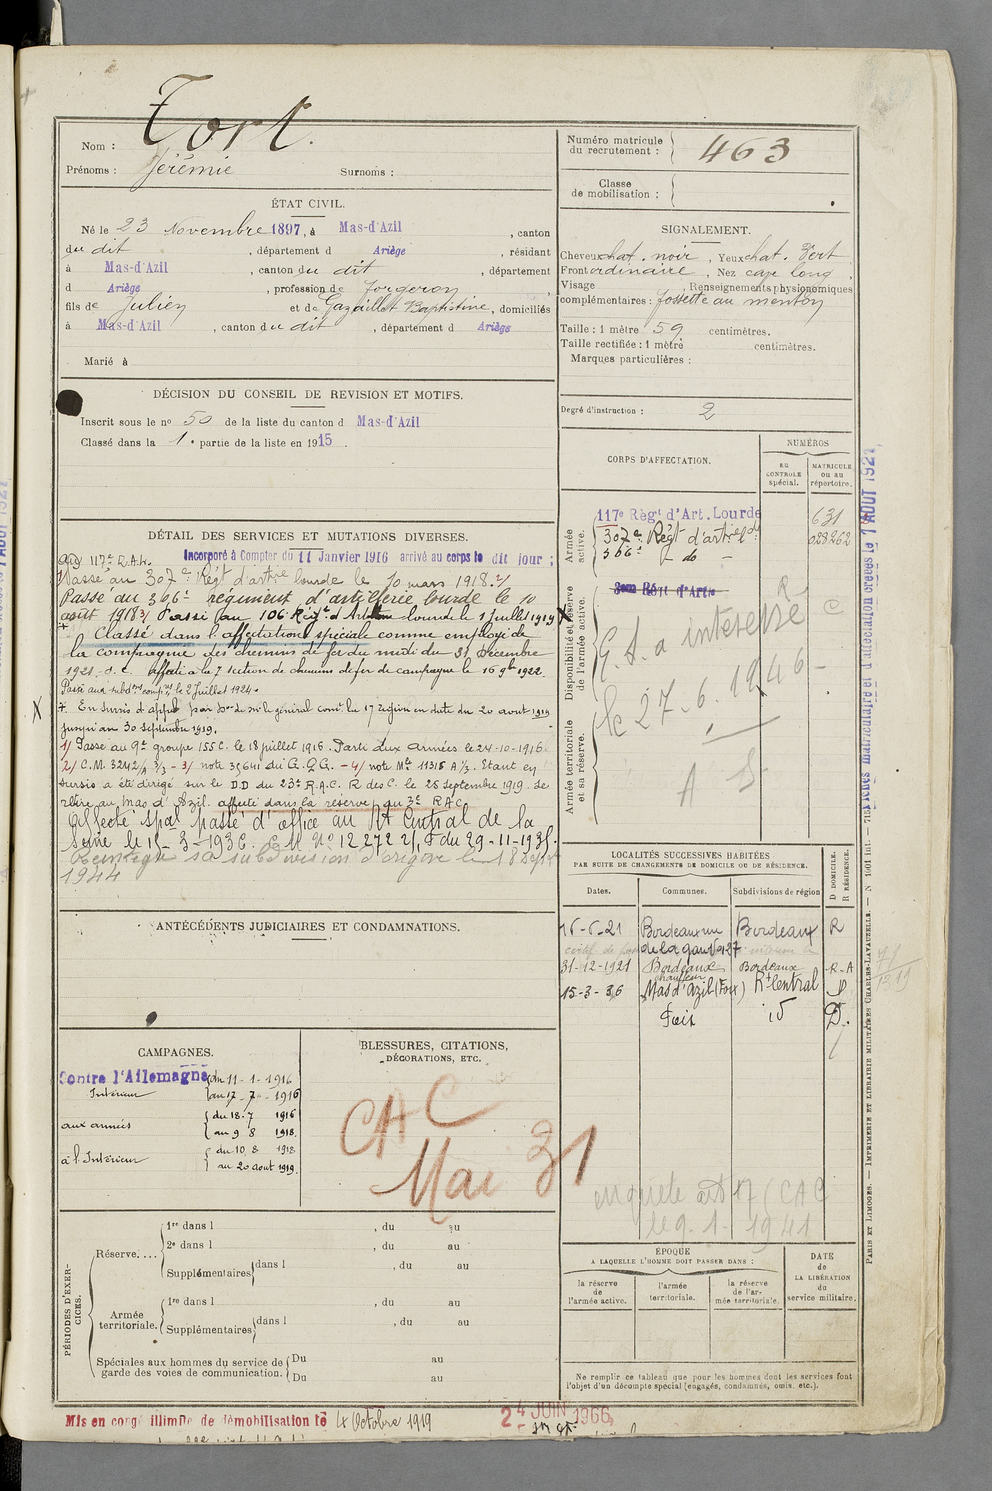 Tort.
Nom :
Prénoms : Jérémie Surnoms :
Numéro matricule du recrutement : 463
Classe de mobilisation :
ÉTAT CIVIL.
Né le 23 Novembre 1897, à Mas-d'Azil , canton
du dit , département d Ariège , résidant
à Mas-d'Azil , canton du dit , département
d Ariège , profession de Forgeron
fils de Julien et de Gazaillet Baptistine, domiciliés
à Mas-d'Azil , canton du dit , département d Ariège
Marié à
SIGNALEMENT.
Cheveux chat. noir , Yeux chat. vert
Front ordinaire , Nez cave long ,
Visage , Renseignements physionomiques
complémentaires : fossette au menton
Taille : 1 mètre 59 centimètres.
Taille rectifiée : 1 mètre centimètres.
Marques particulières :
Degré d'instruction : 2
DÉCISION DU CONSEIL DE REVISION ET MOTIFS.
Inscrit sous le no 50 de la liste du canton d Mas-d'Azil
Classé dans la 1e partie de la liste en 1915 .
CORPS D'AFFECTATION.
NUMÉROS
AU CONTROLE spécial.
MATRICULE ou au répertoire.
Armée active.
117e Règt d'Art. Lourde 631
307e Régt d'artie de 023262
366e do
Disponibilité et réserve de l'armée active.
3eme Régt d'Artie
G.S.a intéressé R- C
le 27.6.1946-
A S
Armée territoriale et sa réserve.
DÉTAIL DES SERVICES ET MUTATIONS DIVERSES.
au 117e R.A.L. Incorporé à Compter du 11 Janvier 1916 arrivé au corps le dit jour ;
Passé au 307e Régt d'artie lourde le 10 mars 1918. 2/
Passé au 366e régiment d'artillerie lourde le 10
août 1918 3/ Passé au 106 Régt d'Artillerie lourde le 1 juillet 1919
Classé dans l'affectation spéciale comme employé de
la compagnie des chemins de fer du midi du 31 décembre
1921. s. c. affecté à la 7 section de chemins de fer de campagne le 16 9bre 1922.
Passé aux subdons compres le 2 Juillet 1924.
* En sursis d'appel par le général comt la 17 région en date du 20 août 1919
jusqu'au 30 septembre 1919.
1/ Passé au 9e groupe 155 C. le 18 juillet 1916. Parti aux armées le 24-10-1916
2/ C.M. 3242/3 - 3/ note 35641 du G.Q.G. - 4/ note Mle 11315 A 1/3. Etant en
sursis a été dirigé sur le D.D du 23e R.A.C. R des C. le 25 Septembre 1919. Se
retire au Mas d'Azil. affecté dans la réserve au 3e RAC
Affecté spal passé d'office au Rt Central de la
Seine le 15-3-1936. C M No 12272 2/, F du 29-11-1935.
Réintégré sa subdivision d'origine le 18 Sept
1944
LOCALITÉS SUCCESSIVES HABITÉES
PAR SUITE DE CHANGEMENTS DE DOMICILE OU DE RÉSIDENCE.
Dates. Communes. Subdivisions de région D DOMICILE. R RÉSIDENCE.
16-6-21 Bordeaux rue Bordeaux R
de la gare 27
31-12-1921 Bordeaux Bordeaux R-A
chauffeur
15-3-36 Mas d'azil (Foix) Rt Central
Foix id D.
ANTÉCÉDENTS JUDICIAIRES ET CONDAMNATIONS.
CAMPAGNES.
Contre l'Allemagne du 11-1-1916
Intérieur au 17-7-1916
aux armées du 18.7 1916
au 9 8 1918
à l'Intérieur du 10 8 1918
au 20 août 1919.
BLESSURES, CITATIONS,
DÉCORATIONS, ETC.
CAC
Mai 31
enquete art 17 (CAC
le 9-1-1941
PÉRIODES D'EXERCICES.
Réserve....
1re dans l , du au
2e dans l , du au
Supplémentaires dans l , du au
Armée territoriale.
1re dans l , du au
Supplémentaires dans l , du au
Spéciales aux hommes du service de garde des voies de communication.
Du au
Du au
ÉPOQUE
A LAQUELLE L'HOMME DOIT PASSER DANS :
la réserve de l'armée active.
l'armée territoriale.
la réserve de l'armée territoriale.
DATE de LA LIBÉRATION du service militaire.
Ne remplir ce tableau que pour les hommes dont les services font
l'objet d'un décompte spécial (engagés, condamnés, omis, etc.).
Mis en congé illimité de démobilisation le 4 Octobre 1919
24 JUIN 1966
PARIS ET LIMOGES. — IMPRIMERIE ET LIBRAIRIE MILITAIRES CHARLES-LAVAUZELLE. — N 1001 int. — 715
Fiches matriculaire et d'affectation créées le 7 AOUT 1921